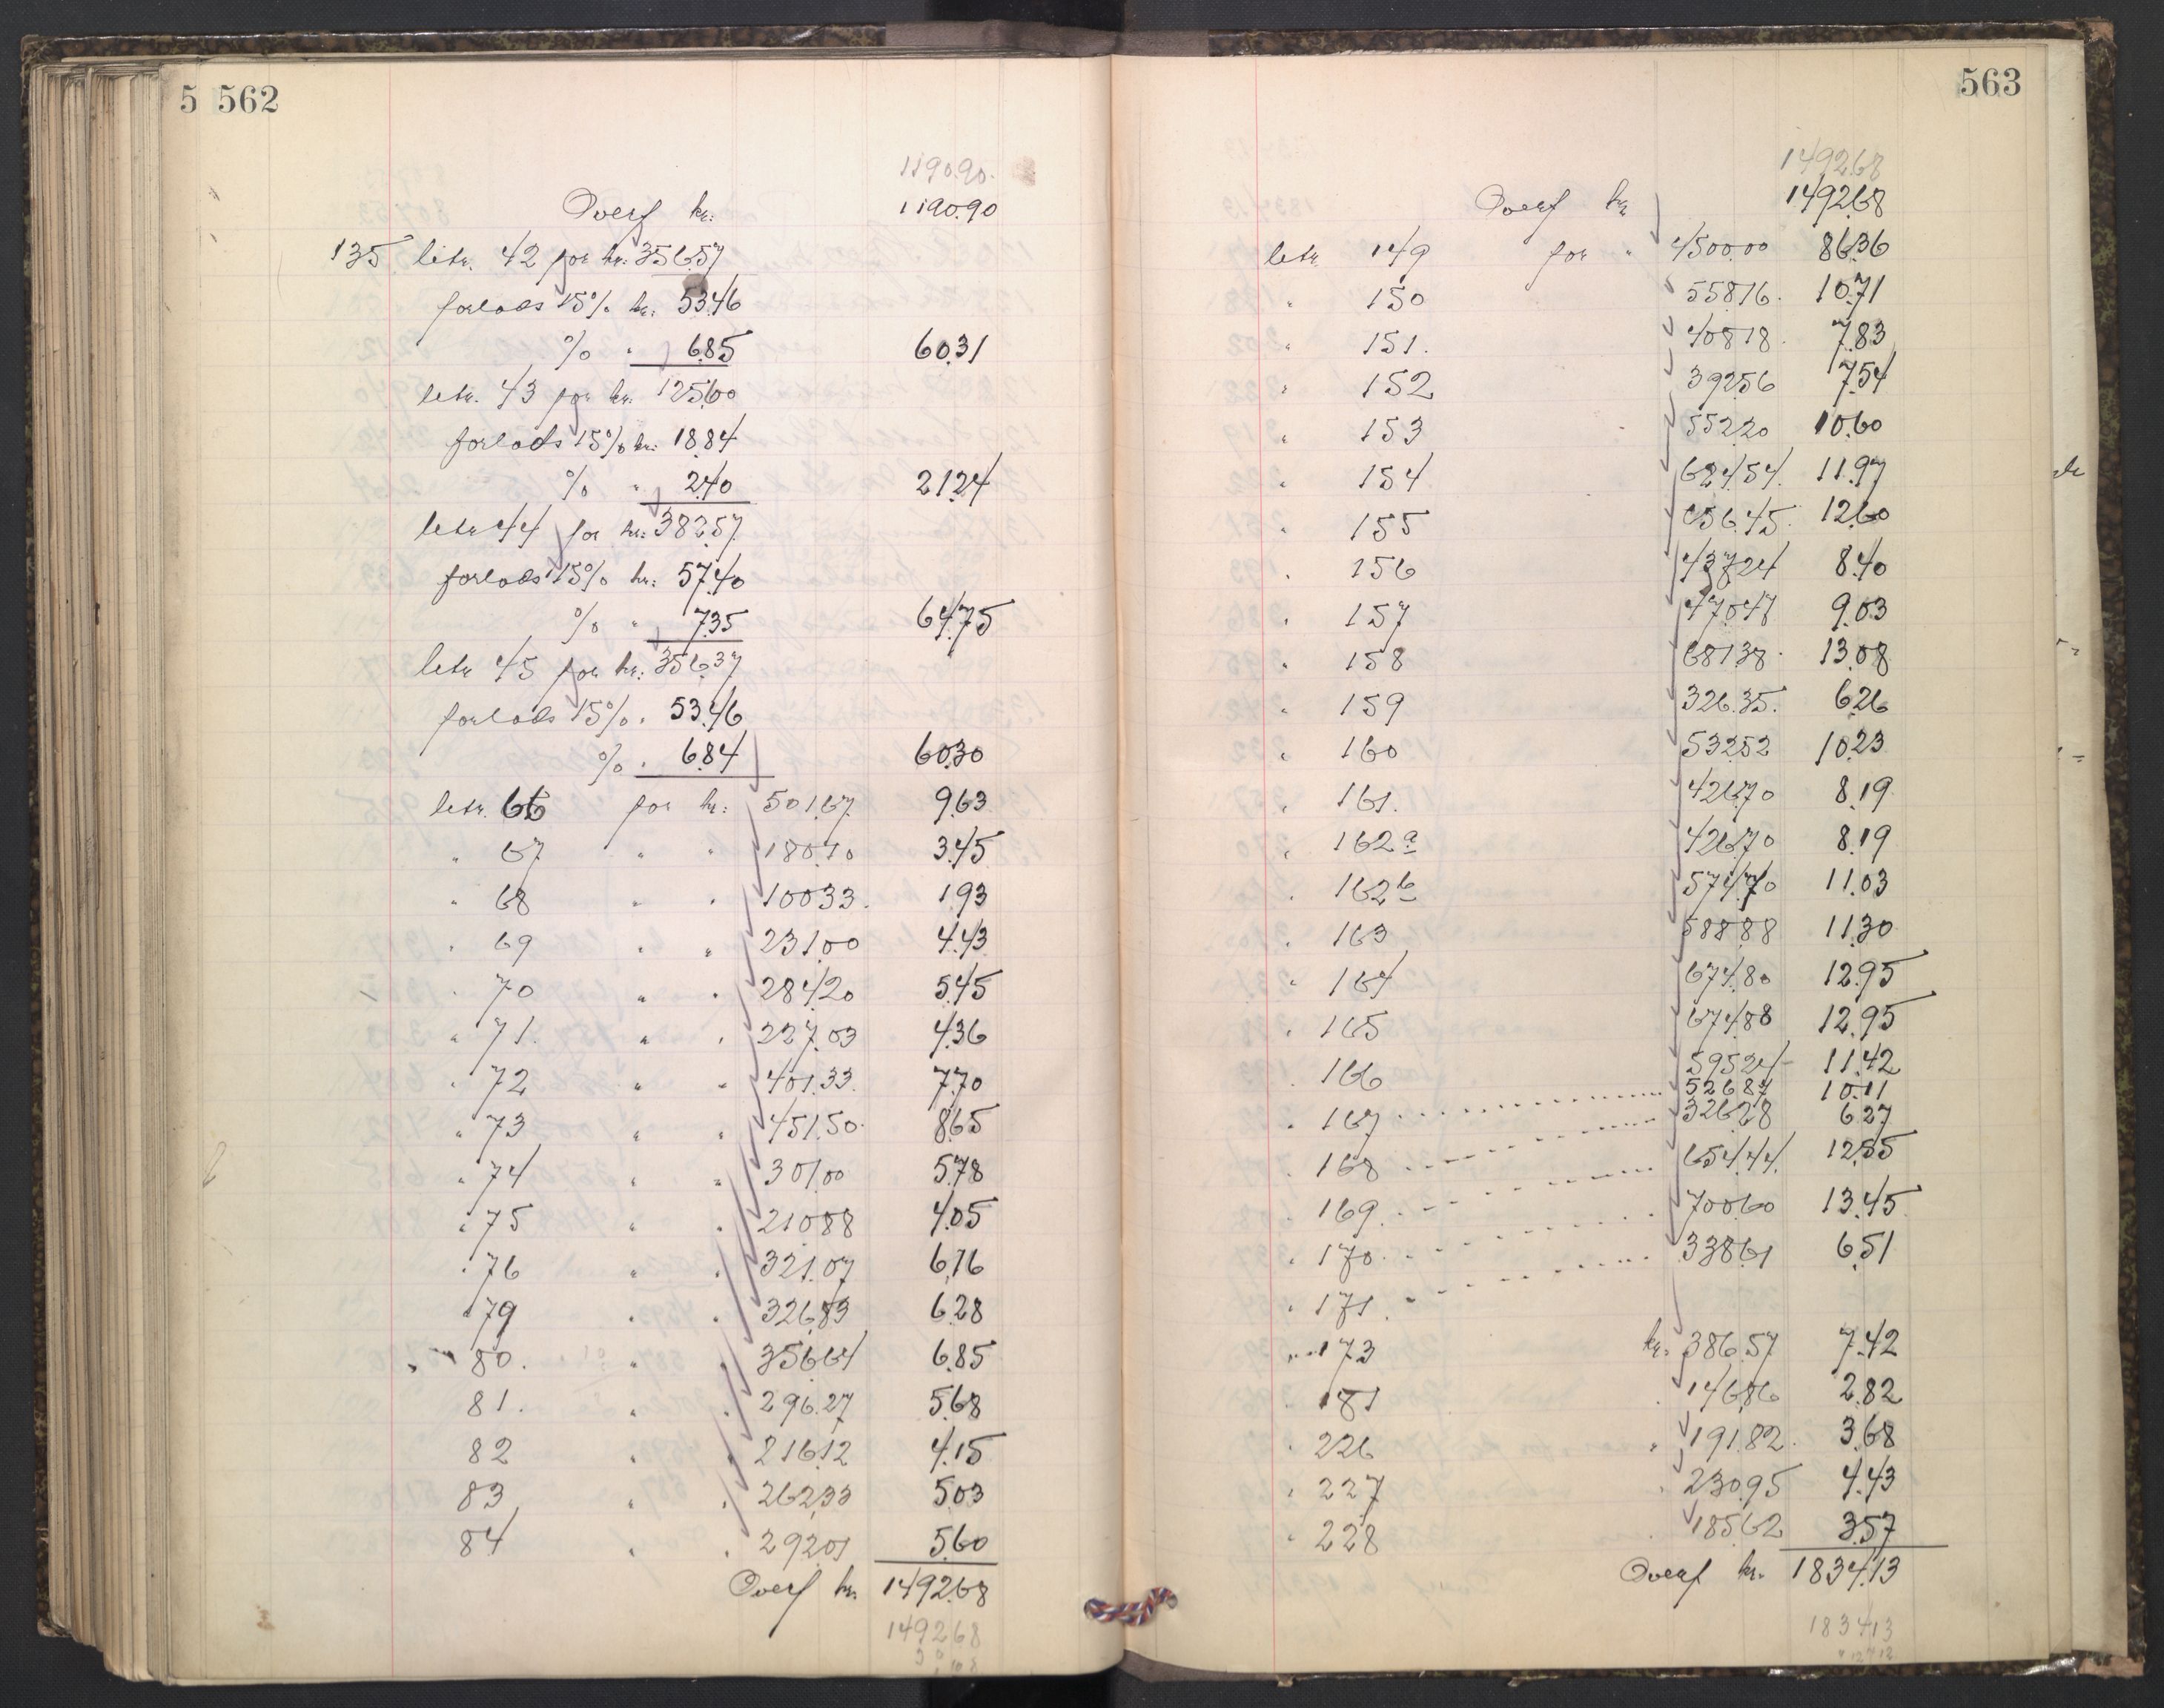 5 562
1190.90.
Overf kr: 1190.90
135 litr. 42 for kr: 356.57
forlods 15% kr: 53.46
% " 6.85 60.31
litr. 43 for kr. 125.60
forlods 15% kr: 18.84
% " 2.40 21.24
litr 44 for kr: 382.57
forlods 15% kr: 57.40
% " 7.35 64.75
litr 45 for kr: 356.37
forlods 15% " 53.46
% " 6.84 60.30
litr. 66 for kr: 501.67 9.63
" 67 " " 180.10 3.45
" 68 " " 100.33. 1.93
" 69 " " 231.00 4.43
" 70 " " 284.20 5.45
" 71. " " 227.03 4.36
" 72 " " 401.33. 7.70
" 73 " " 451.50. 8.65
" 74 " " 301.00 5.78
" 75 " " 210.88 4.05
" 76 " " 321.07 6.16
" 79 " " 326.83 6.28
" 80. " " 356.64 6.85
81. " " 296.27 5.68
82 " " 216.12 4.15
83 " " 262.33 5.03
84 " " 292.01 5.60
Overf kr. 1492.68
1492.68
563
1492.68
Overf kr 1492.68
litr 149 for " 4500.00 86.36
" 150 558.16. 10.71
" 151. 408.18. 7.83
" 152 392.56 7.54
" 153 552.20 10.60
" 154 624.54. 11.97
" 155 656.45. 12.60
" 156 437.24 8.40
" 157 470.47 9.03
" 158 681.38. 13.08
" 159 326.35. 6.26
" 160 532.52 10.23
" 161. 426.70 8.19
" 162a 426.70 8.19
" 162b 574.70 11.03
" 163 588.88 11.30
" 164 674.80 12.95
" 165 674.88 12.95
" 166 595.24 11.42
" 167 526.87 10.11
" 168 326.28 6.27
" 169. 654.44. 12.55
" 170 700.60 13.45
" 171. 338.61 6.51
" 173 kr. 386.57 7.42
" 181 " 146.86 2.82
" 226 " 191.82. 3.68
" 227 " 230.95 4.43
" 228 " 185.62 3.57
Overf kr. 1834.13
1834.13